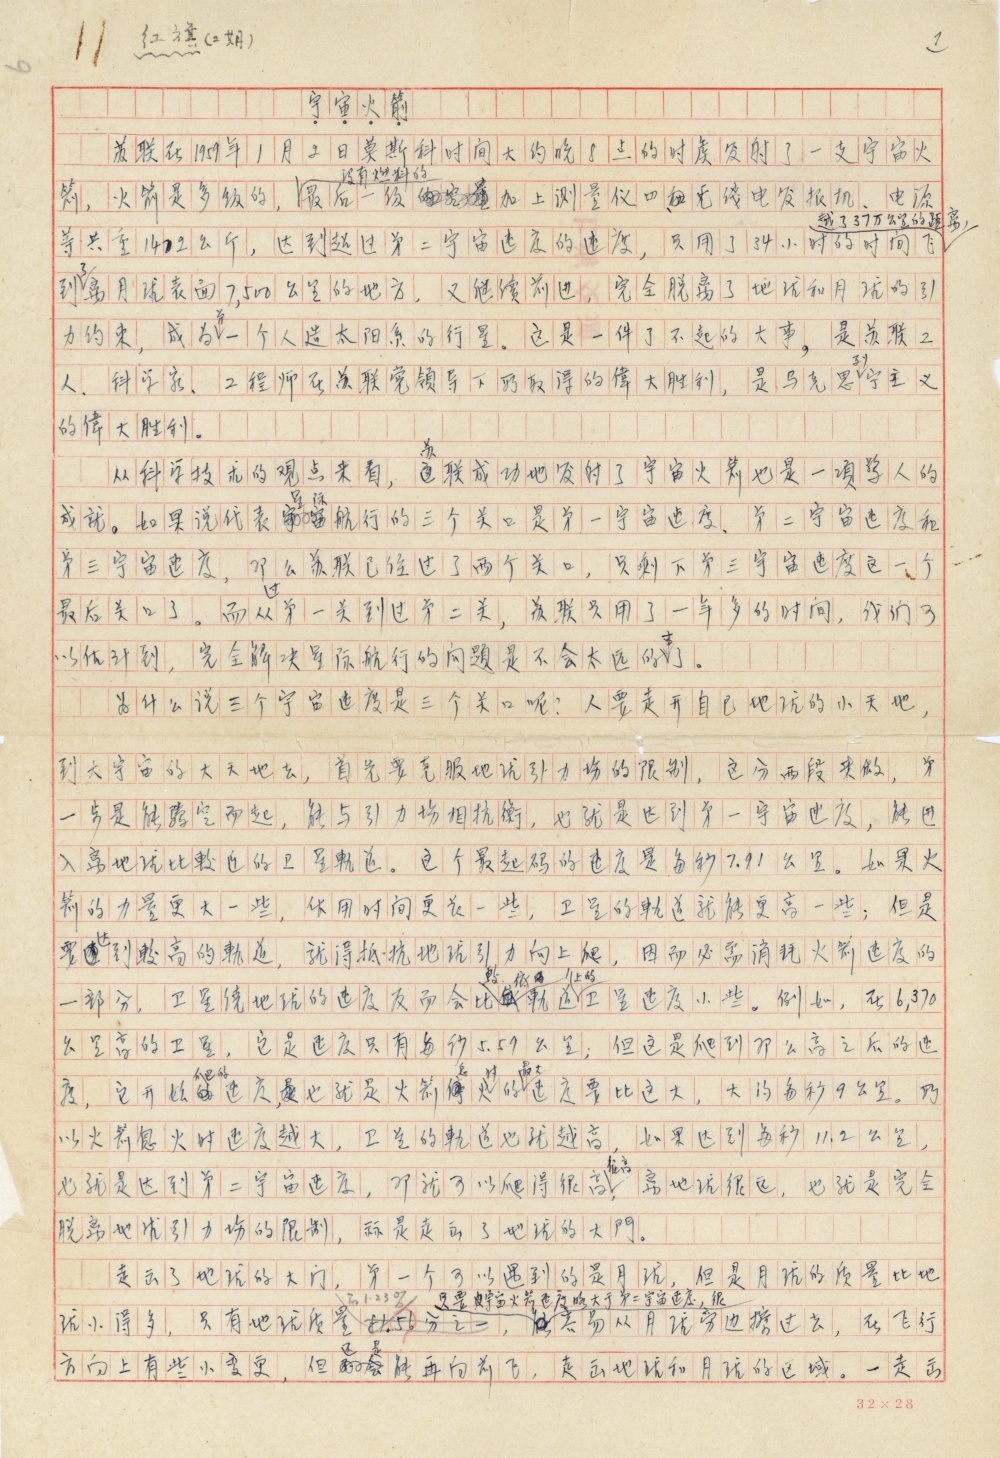 11 红旗(2期) 1
宇宙火箭
苏联在1959年1月2日莫斯科时间大约晚8点的时候发射了一支宇宙火
没有燃料的
箭，火箭是多级的，最后一级加上测量仪四和无线电发报机、电源
越了37万公里的距离，
等共重1472公斤，达到超过第二宇宙速度的速度，只用了34小时的时间飞
到了离月球表面7,500公里的地方，又继续前进，完全脱离了地球和月球的引
力约束，成为第一个人造太阳系的行星。这是一件了不起的大事，是苏联工
人、科学家、工程师在苏联党领导下所取得的偉大胜利，是马克思列宁主义
的偉大胜利。
从科学技术的观点来看，苏联成功地发射了宇宙火箭也是一項驚人的
成就。如果说代表星际航行的三个关口是第一宇宙速度、第二宇宙速度和
第三宇宙速度，那么苏联已经过了两个关口，只剩下第三宇宙速度这一个
最后关口了。而从过第一关到过第二关，苏联只用了一年多的时间，我们可
以估计到，完全解决星际航行的问題是不会太远的事了。
为什么说三个宇宙速度是三个关口呢？人要走开自己地球的小天地，
到大宇宙的大天地去，首先要克服地球引力场的限制，这分两段来做，第
一步是能騰空而起，能与引力场相抗衡，也就是达到第一宇宙速度，能进
入离地球比較近的卫星軌道。这个最起码的速度是每秒7.91公里。如果火
箭的力量更大一些，作用时间更长一些，卫星的軌道就能更高一些；但是
要达到較高的軌道，就得抵抗地球引力向上爬，因而必需消耗火箭速度的
一部分，卫星绕地球的速度反而会比較低的軌道上的卫星速度小些。例如，在6,370
公里高的卫星，它是速度只有每秒5.59公里；但这是爬到那么高之后的速
度，它开始爬的速度，也就是火箭熄火时的最大速度要比这大，大约每秒9公里。所
以火箭熄火时速度越大，卫星的軌道也就越高，如果达到每秒11.2公里，
也就是达到第二宇宙速度，那就可以爬得很高很高，离地球很远，也就是完全
脱离地球引力场的限制，称是走出了地球的大門。
走出了地球的大门，第一个可以遇到的是月球，但是月球的质量比地
的1.23% 只要宇宙火箭速度略大于第二宇宙速度，很
球小得多，只有地球质量，容易从月球旁边擦过去，在飞行
方向上有些小变更，但还是能再向前飞，走出地球和月球的区域。一走出
32×28